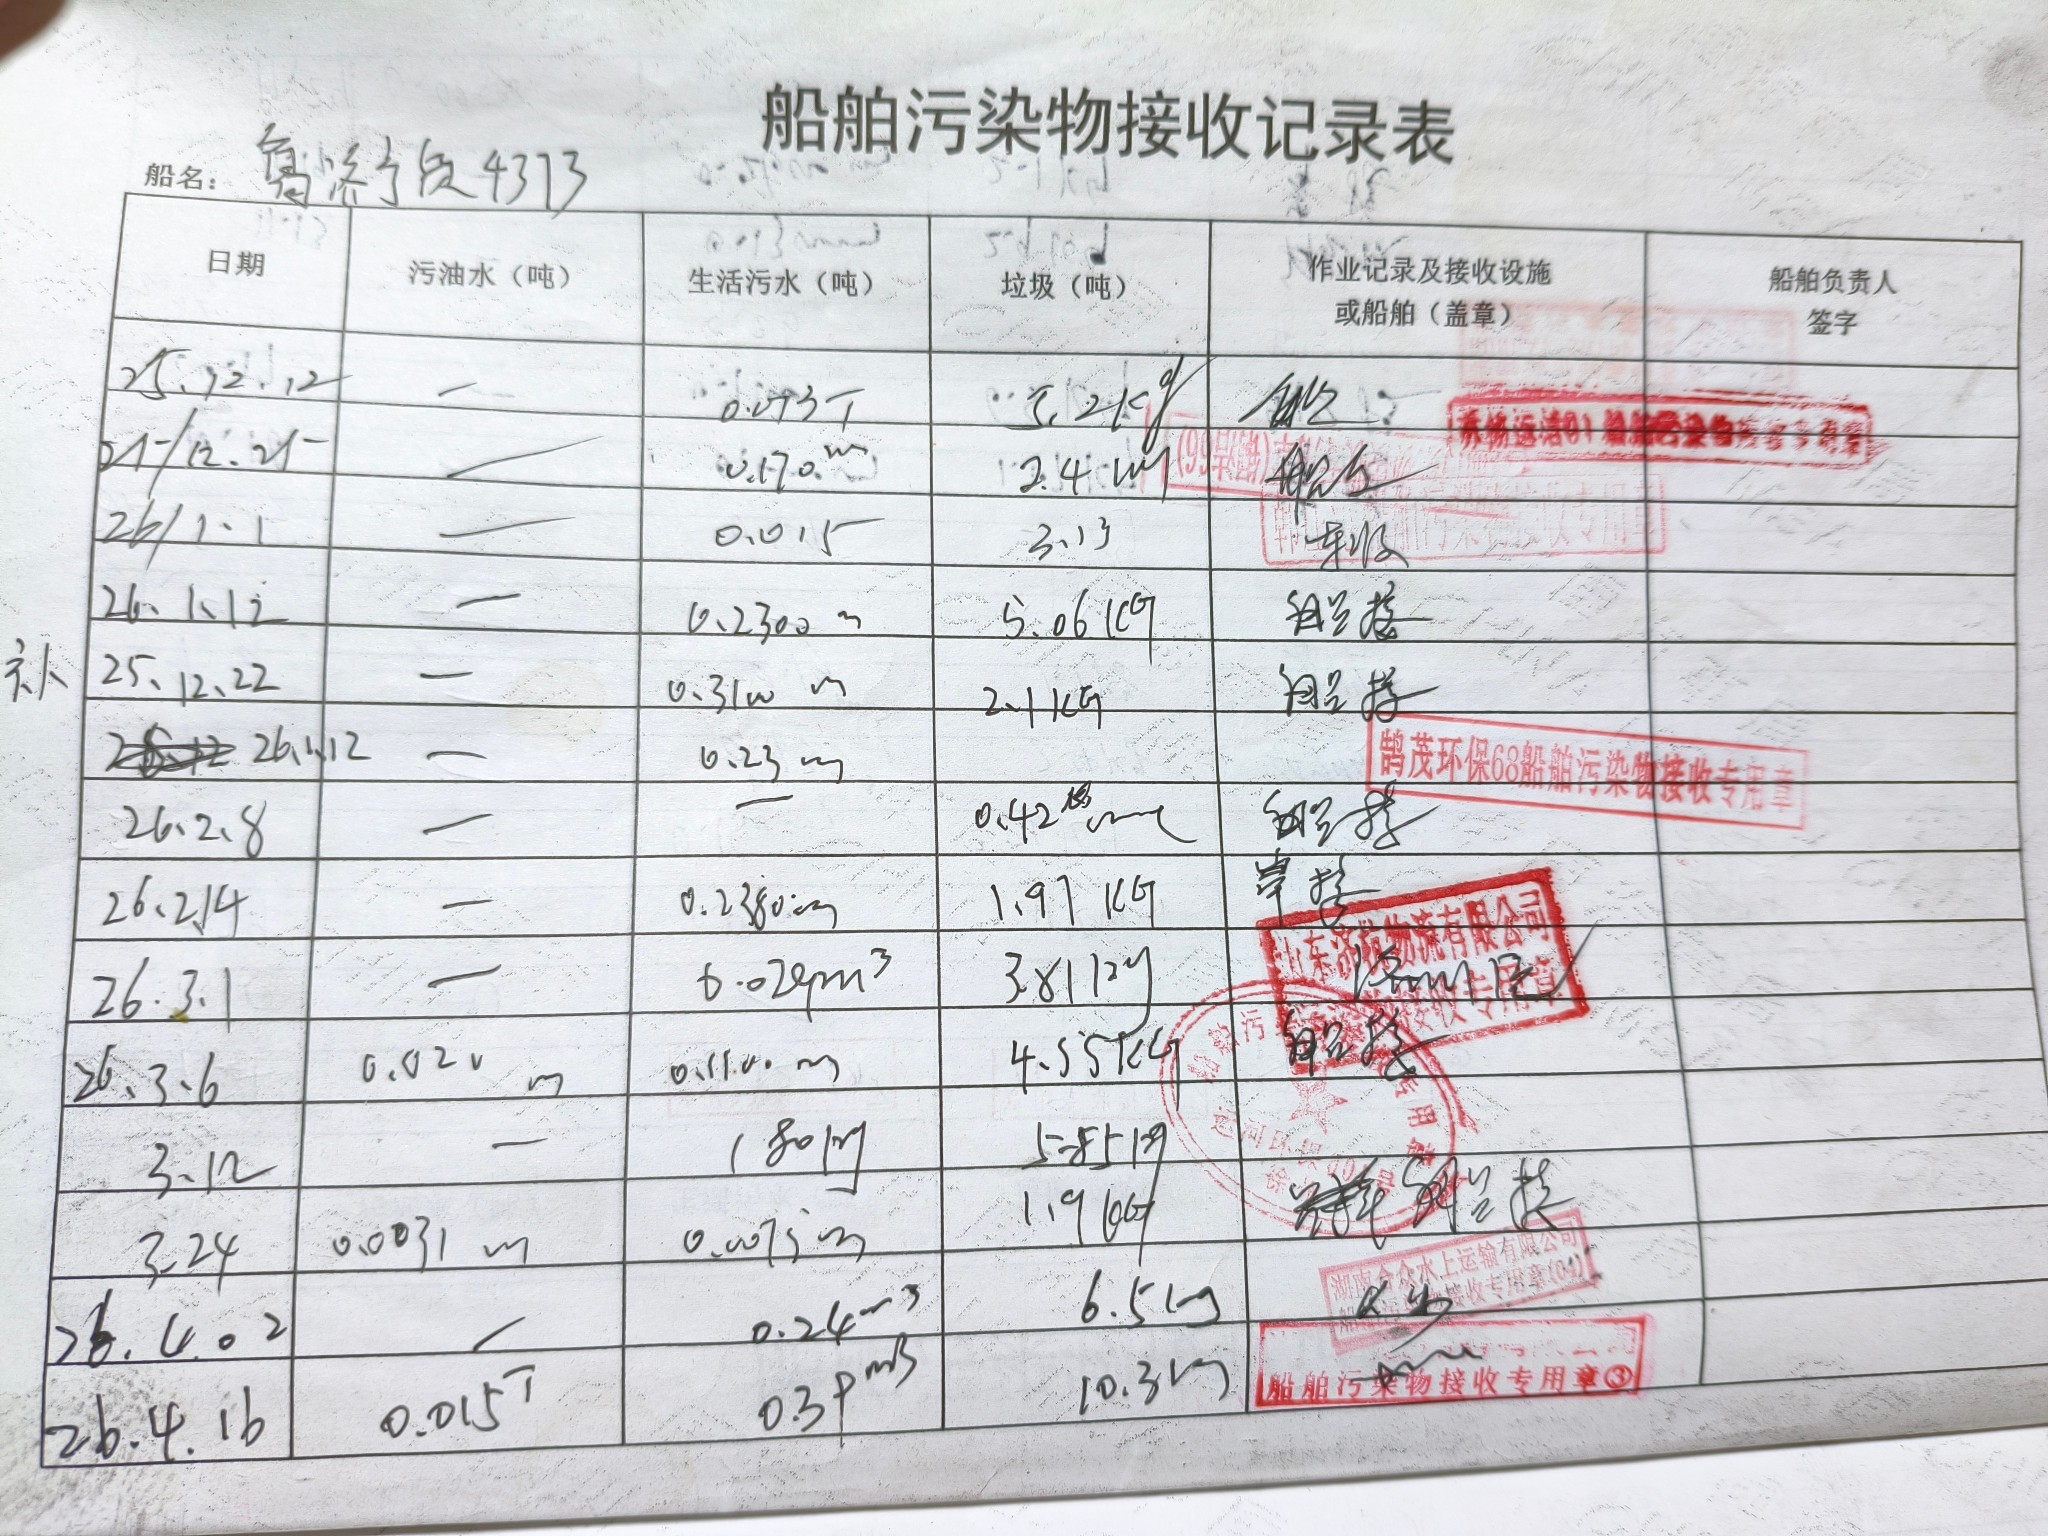 船舶污染物接收记录表
船名： 鲁济宁货4373
日期 污油水（吨） 生活污水（吨） 垃圾（吨） 作业记录及接收设施或船舶（盖章） 船舶负责人签字
25.12.12 — 0.073T 5.2kg 船
苏扬运洁01 船舶污染物接收专用章
25/12.25 — 0.170 m 2.4 kg 船
26/1.1 — 0.015 3.13 车收
船舶污染物接收专用章
26.1.12 — 0.2300 m 5.06KG 船接
补 25.12.22 — 0.3100 m 2.1KG 船接
26.1.12 — 0.23 m
鹊茂环保68船舶污染物接收专用章
26.2.8 — — 0.42 船接
26.2.14 — 0.2380 m 1.97 KG 岸接
山东济 物流有限公司
接收专用章
26.3.1 — 0.029m³ 3.81kg
26.3.6 0.020 m 0.1100 m 4.55KG 船接
船舶污染 专用章
运河环保
3.12 — 180kg 5.85kg
3.24 0.0031 m 0.0075 m 1.9KG 船接
湖南合众水上运输有限公司
船舶污染物接收专用章(01)
26.4.02 — 0.24m³ 6.5kg
26.4.16 0.015T 0.39m3 10.3kg
船舶污染物接收专用章③